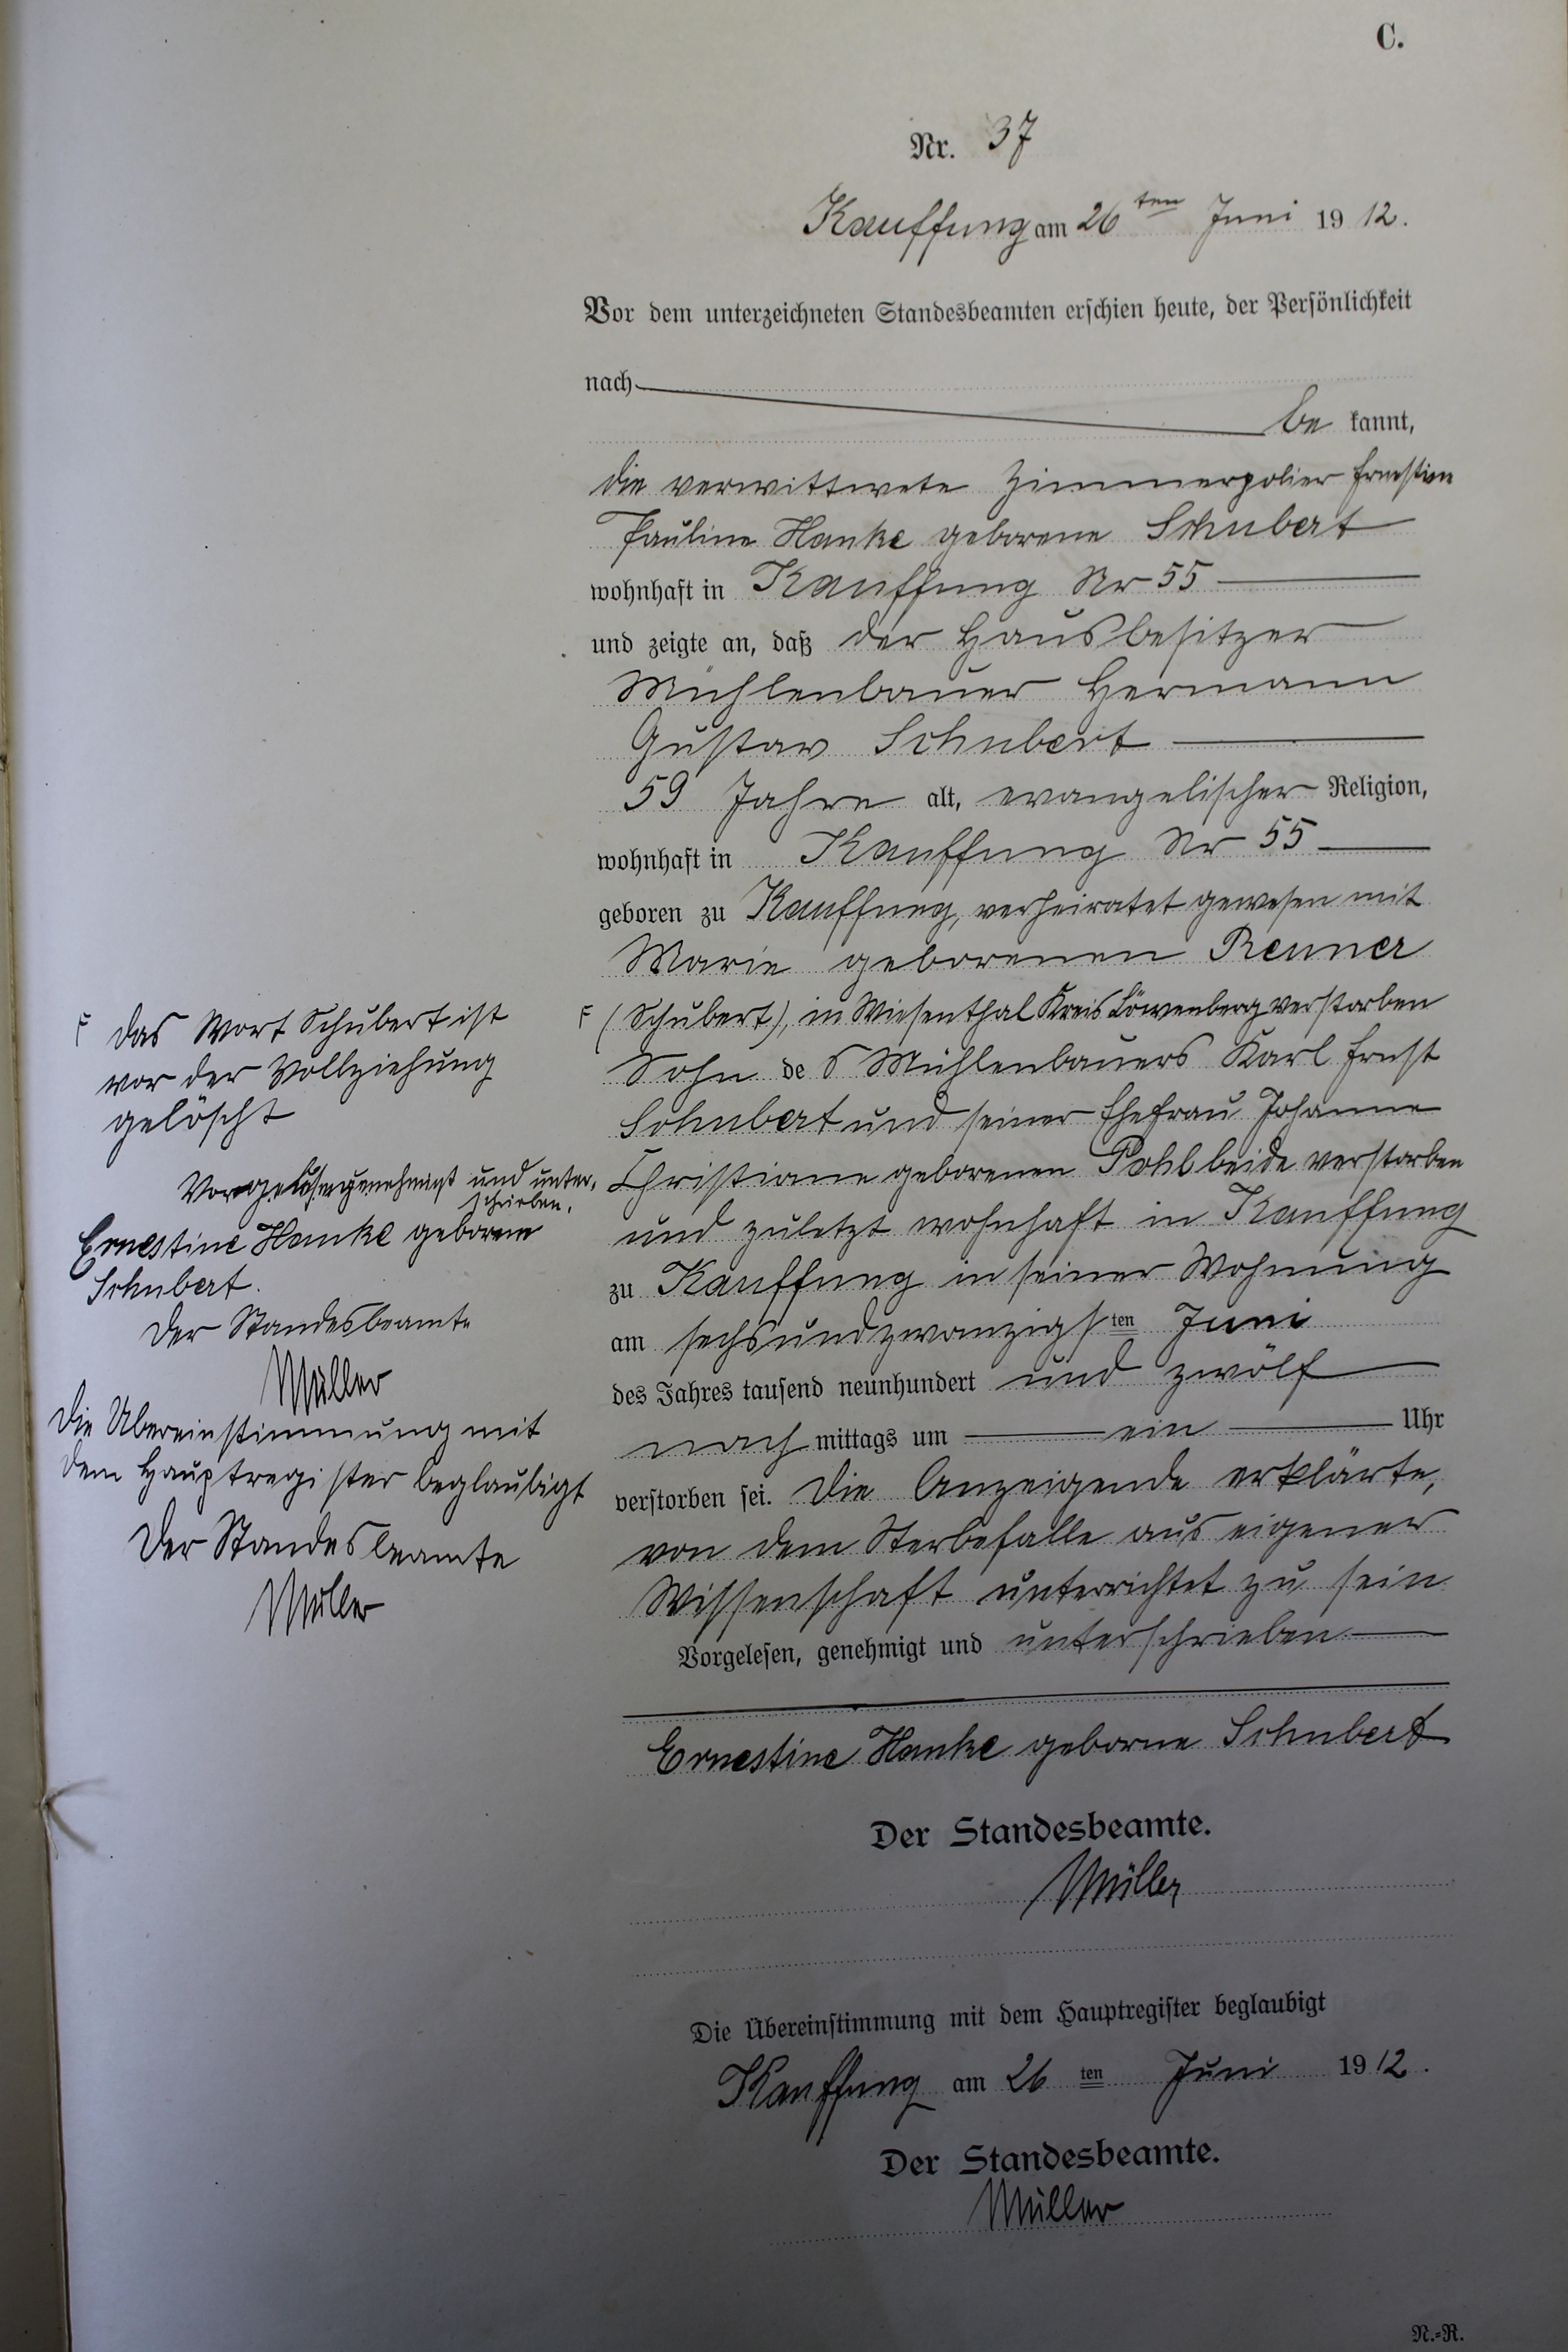 C.
Nr. 37
Kauffung am 26ten Juni 1912.
Vor dem unterzeichneten Standesbeamten erschien heute, der Persönlichkeit
nach
be kannt,
die verwittwete Zimmerpolier Ernestine
Pauline Hanke geborene Schubert
wohnhaft in Kauffung Nr 55
und zeigte an, daß der Hausbesitzer
Mühlenbauer Hermann
Gustav Schubert
59 Jahre alt, evangelischer Religion,
wohnhaft in Kauffung Nr 55
geboren zu Kauffung, verheiratet gewesen mit
Marie geborenen Renner
F (Schubert), in Wiesenthal Kreis Löwenberg verstorben
Sohn des Mühlenbauers Karl Ernst
Schubert und seiner Ehefrau Johanne
Christiane geborenen Pohl beide verstorben
und zuletzt wohnhaft in Kauffung
zu Kauffung in seiner Wohnung
am sechsundzwanzigsten Juni
des Jahres tausend neunhundert und zwölf
nach mittags um ein Uhr
verstorben sei. Die Anzeigende erklärte,
von dem Sterbefalle aus eigener
Wissenschaft unterrichtet zu sein
Vorgelesen, genehmigt und unterschrieben
Ernestine Hanke geborne Schubert
Der Standesbeamte.
Müller
Die Übereinstimmung mit dem Hauptregister beglaubigt
Kauffung am 26ten Juni 1912.
Der Standesbeamte.
Müller
N.=R.
F Das Wort Schubert ist
vor der Vollziehung
gelöscht
Vorgelesen genehmigt und unter-
schrieben.
Ernestine Hanke geborne
Schubert.
Der Standesbeamte
Müller
Die Übereinstimmung mit
dem Hauptregister beglaubigt
Der Standesbeamte
Müller